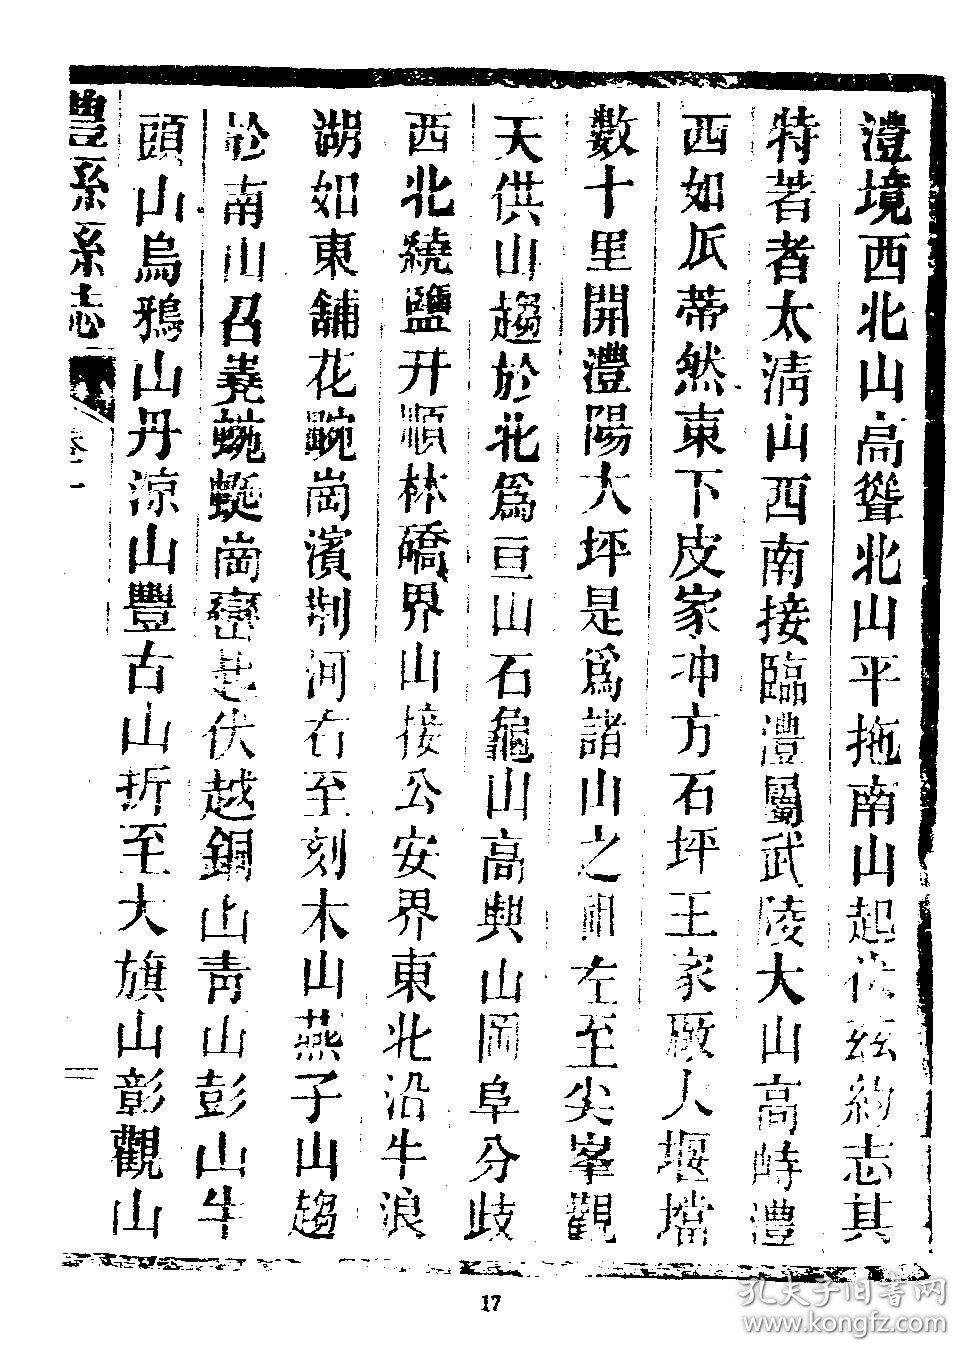 澧境西北山高聳北山平拖南山起伏茲約志其
特著者太淸山西南接臨澧屬武陵大山高峙澧
西如瓜蒂然東下皮家冲方石坪王家厰人堰壋
數十里開澧陽大坪是爲諸山之祖左至尖峯觀
天供山趨於北爲亘山石龜山高興山岡阜分歧
西北繞鹽井順林礄界山接公安界東北沿牛浪
湖如東舖花畹崗濱荆河右至刻木山燕子山趨
於南山召蕘蜿蜒崗巒起伏越銅山青山彭山牛
頭山烏鴉山丹涼山豐古山折至大旗山彰觀山
豊縣縣志
卷一
二
17
孔夫子旧書网
www.kongfz.com